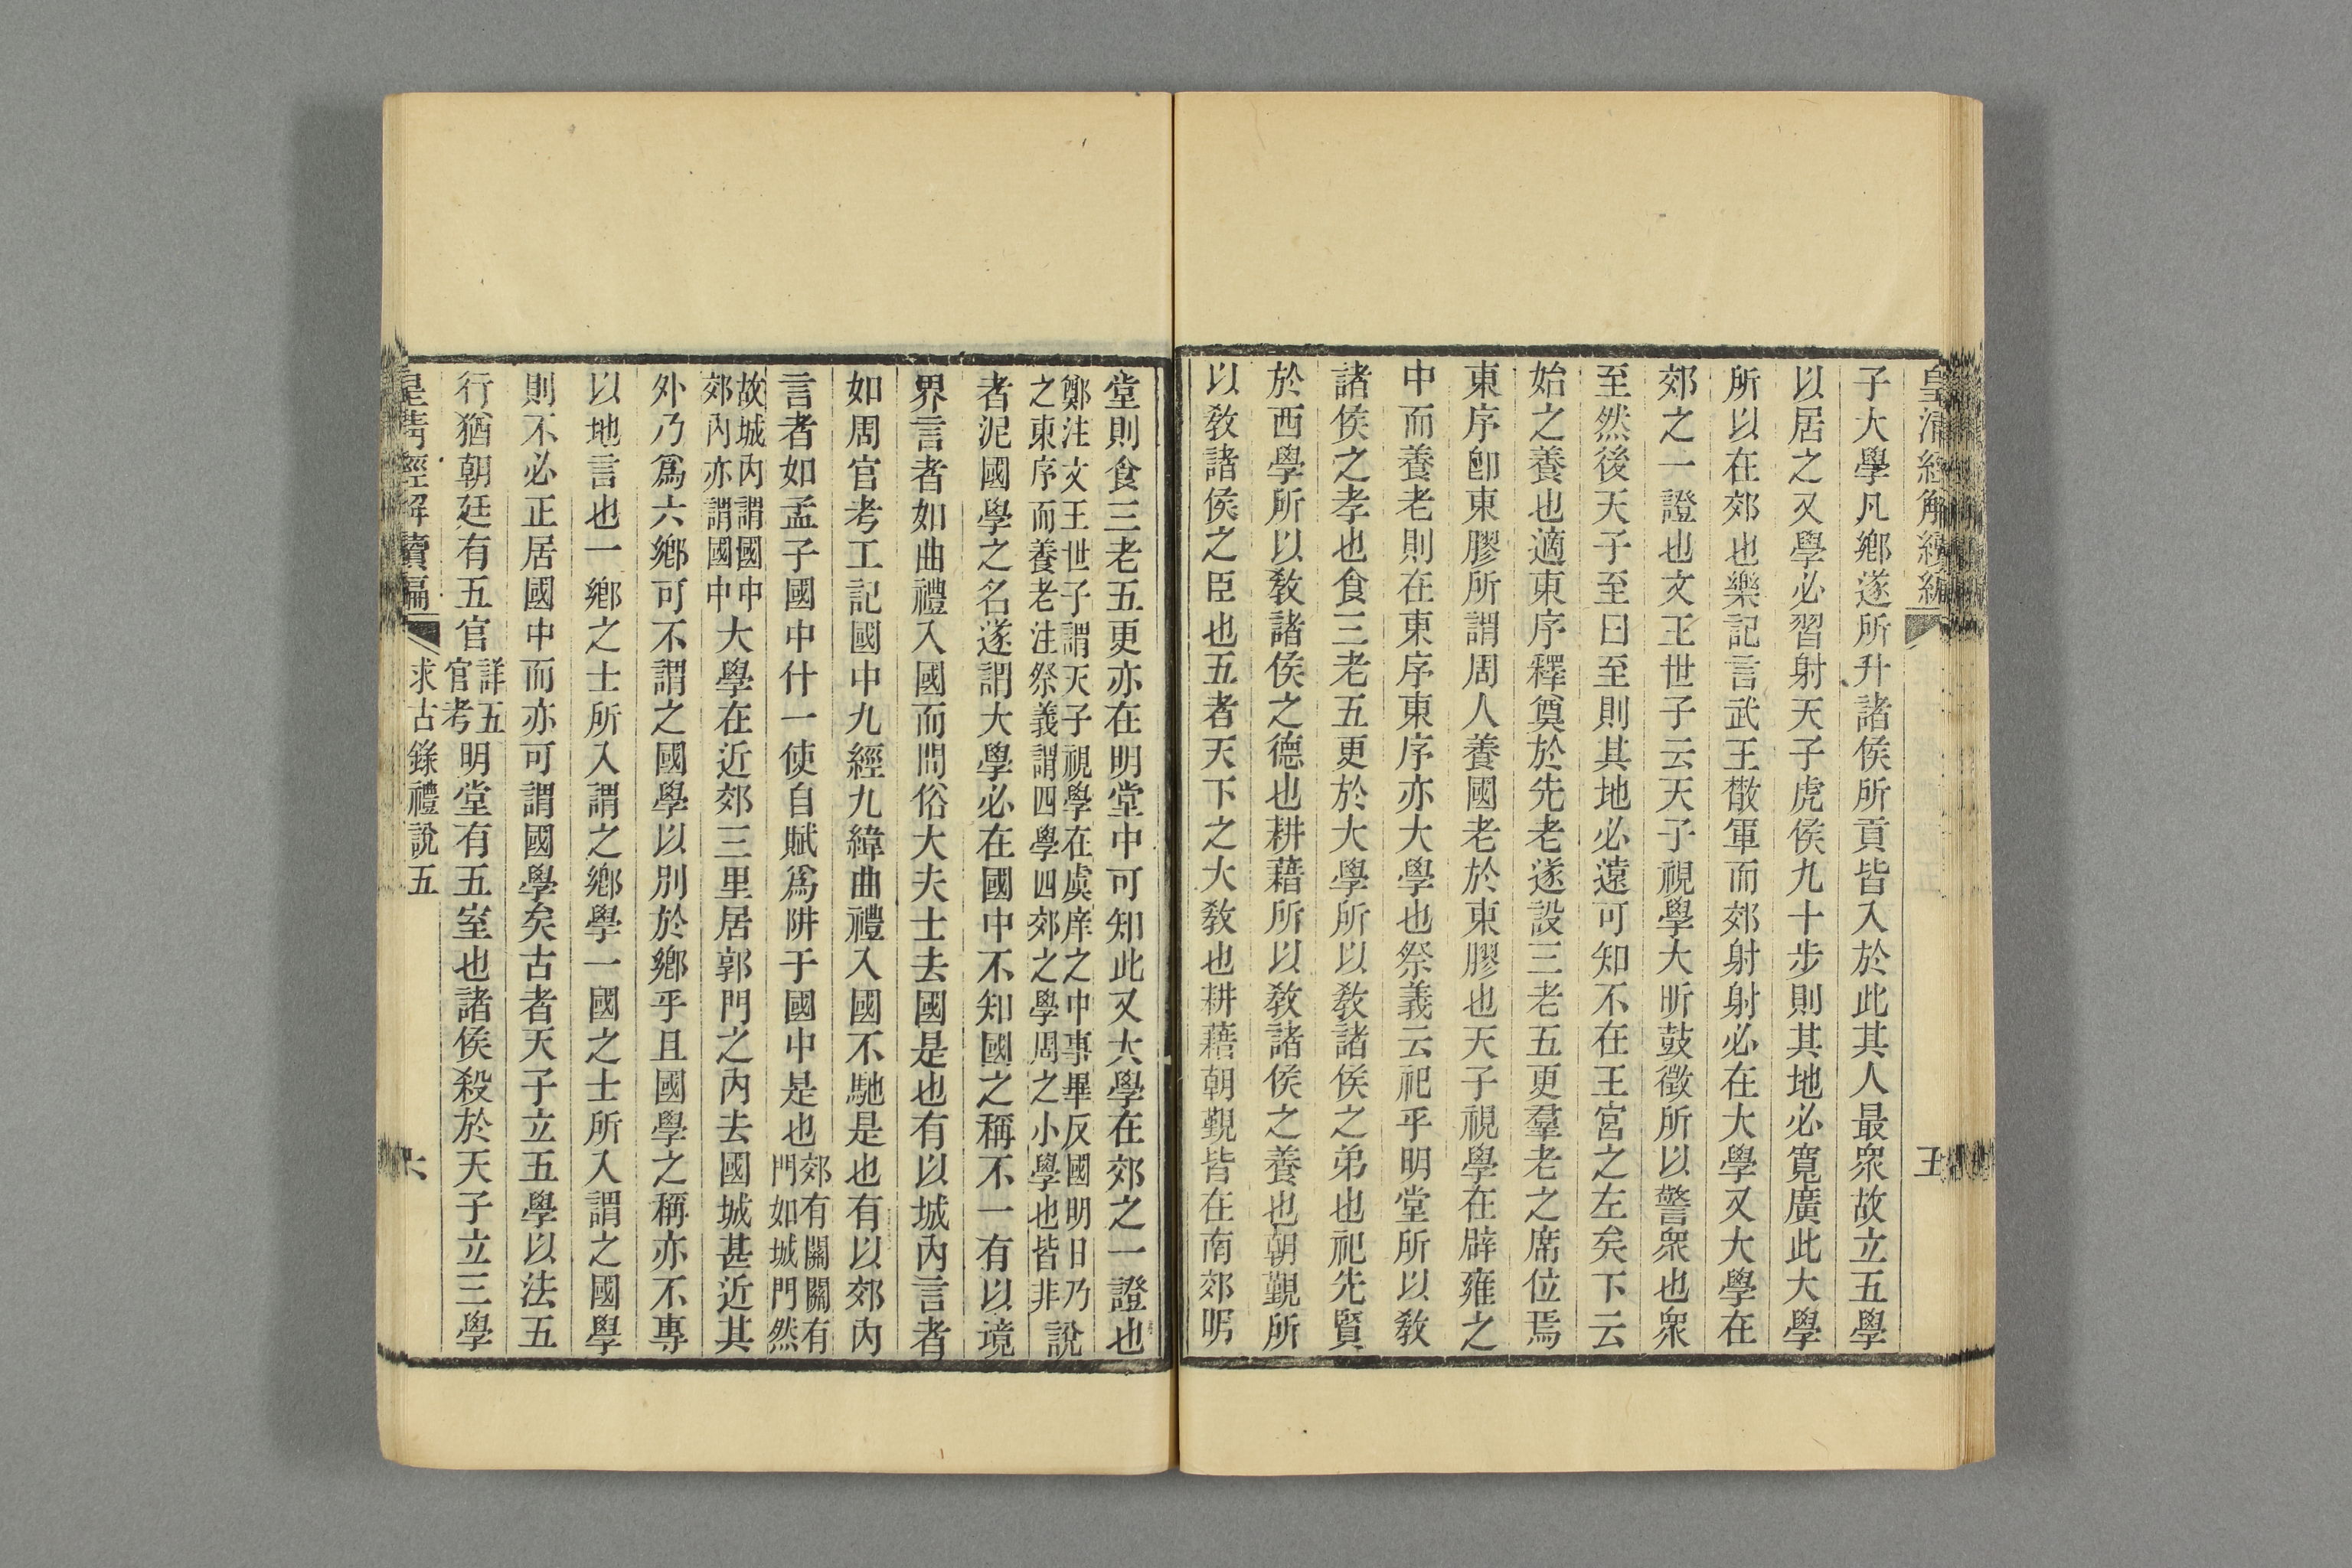 皇清經解續編
五
子大學凡鄉遂所升諸侯所貢皆入於此其人最衆故立五學
以居之又學必習射天子虎侯九十步則其地必寬廣此大學
所以在郊也樂記言武王散軍而郊射射必在大學又大學在
郊之一證也文王世子云天子視學大昕鼓徵所以警衆也衆
至然後天子至曰至則其地必遠可知不在王宮之左矣下云
始之養也適東序釋奠於先老遂設三老五更羣老之席位焉
東序卽東膠所謂周人養國老於東膠也天子視學在辟雍之
中而養老則在東序東序亦大學也祭義云祀乎明堂所以敎
諸侯之孝也食三老五更於大學所以敎諸侯之弟也祀先賢
於西學所以敎諸侯之德也耕藉所以敎諸侯之養也朝覲所
以敎諸侯之臣也五者天下之大敎也耕藉朝覲皆在南郊明
堂則食三老五更亦在明堂中可知此又大學在郊之一證也
鄭注文王世子謂天子視學在虞庠之中事畢反國明日乃
之東序而養老注祭義謂四學四郊之學周之小學也皆非
說
者泥國學之名遂謂大學必在國中不知國之稱不一有以境
界言者如曲禮入國而問俗大夫士去國是也有以城內言者
如周官考工記國中九經九緯曲禮入國不馳是也有以郊內
言者如孟子國中什一使自賦爲阱于國中是也
郊有關關有
門如城門然
故城內謂國中
郊內亦謂國中
大學在近郊三里居郭門之內去國城甚近其
外乃爲六鄉可不謂之國學以別於鄉乎且國學之稱亦不專
以地言也一鄉之士所入謂之鄉學一國之士所入謂之國學
則不必正居國中而亦可謂國學矣古者天子立五學以法五
行猶朝廷有五官
詳五
官考
明堂有五室也諸侯殺於天子立三學
皇清經解續編
求古錄禮說五
六